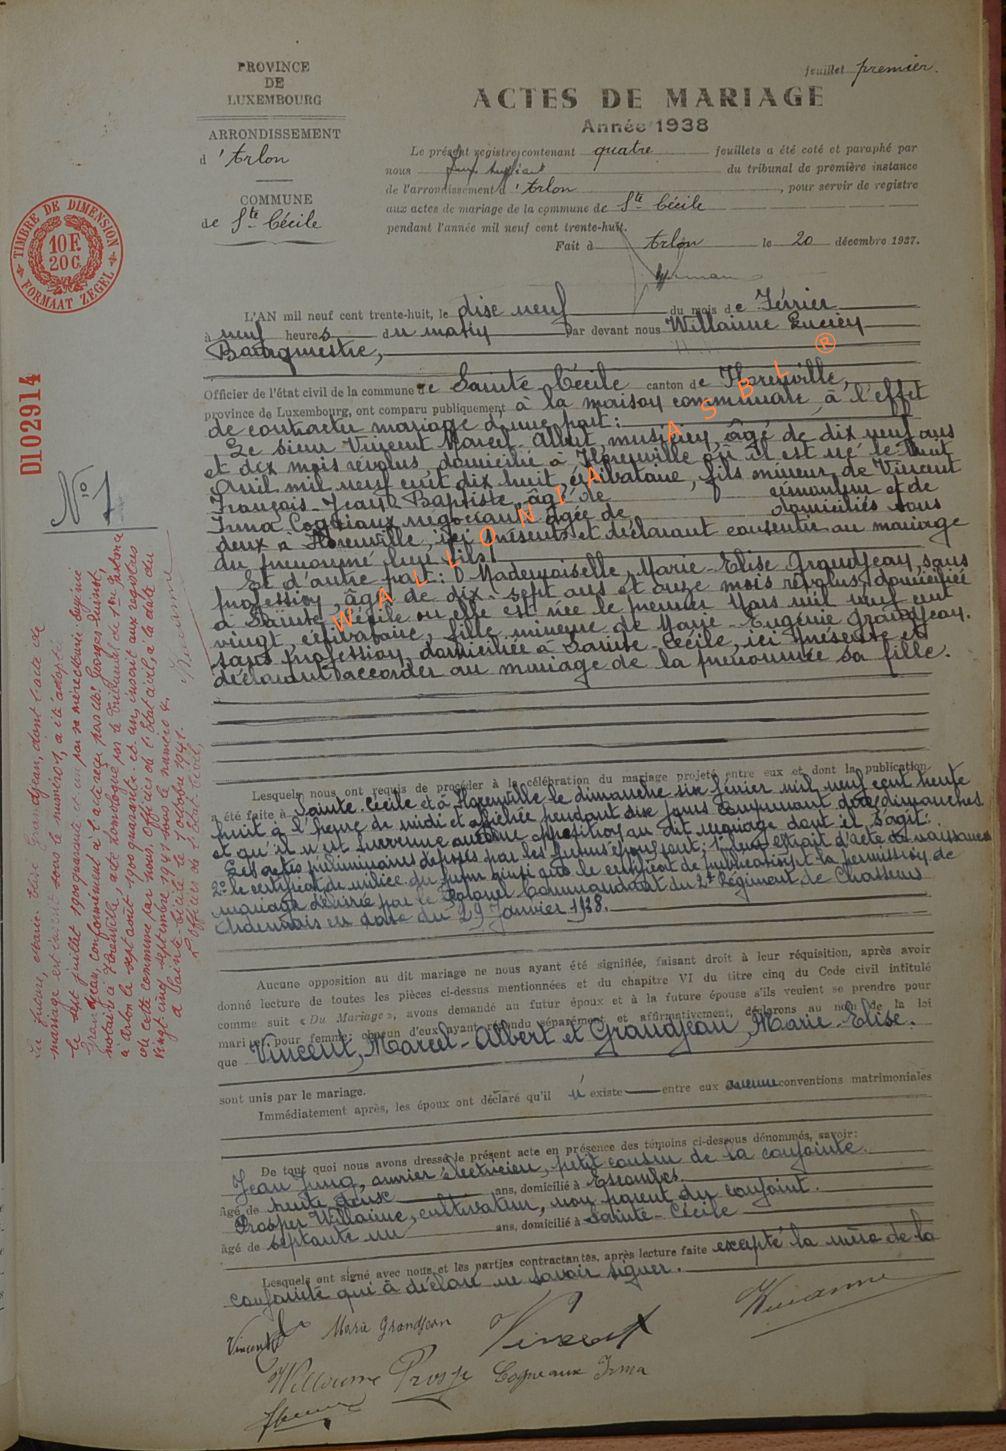 feuillet premier.
PROVINCE
DE
LUXEMBOURG
ARRONDISSEMENT
d'Arlon
COMMUNE
de Ste Cécile
ACTES DE MARIAGE
Année 1938
Le présent registre contenant quatre feuillets a été coté et paraphé par
nous Juge suppléant du tribunal de première instance
de l'arrondissement d'Arlon, pour servir de registre
aux actes de mariage de la commune de Ste Cécile
pendant l'année mil neuf cent trente-huit.
Fait à Arlon le 20 décembre 1937.
TIMBRE DE DIMENSION
10 F.
20 C.
FORMAAT ZEGEL
D102914
No 1
L'AN mil neuf cent trente-huit, le dixe neuf du mois de Février
à neuf heures du matin par devant nous Willaime Lucien
Bourgmestre,
Officier de l'état civil de la commune de Sainte Cécile canton de Florenville,
province de Luxembourg, ont comparu publiquement à la maison communale, à l'effet
de contracter mariage d'une part:
Le sieur Vincent Marcel-Albert, musicien, âgé de dix neuf ans
et dix mois révolus, domicilié à Florenville où il est né le huit
Avril mil neuf cent dix huit, célibataire, fils mineur de Vincent
François-Jean-Baptiste, âgé de cimentier et de
Irma Cogneaux négociante âgée de domiciliés tous
deux à Florenville, ici présents et déclarant consentir au mariage
du prénommé leur fils.
Et d'autre part: Mademoiselle, Marie-Elise Grandjean, sans
profession, âgée de dix-sept ans et onze mois révolus, domiciliée
à Sainte Cécile où elle est née le premier Mars mil neuf cent
vingt, célibataire, fille mineure de Marie-Eugénie Grandjean,
sans profession, domiciliée à Sainte-Cécile, ici présente et
déclarant accorder au mariage de la prénommée sa fille.
WALLONIA ASBL ®
Lesquels nous ont requis de procéder à la célébration du mariage projeté entre eux et dont la publication
a été faite à Sainte Cécile et à Florenville le dimanche six février mil neuf cent trente
huit à l'heure de midi et affichée pendant dix jours comprenant deux dimanches
et qu'il n'est survenue aucune opposition au dit mariage dont il s'agit.
Les actes préliminaires déposés par les futurs époux sont: 1° extrait d'acte de naissance
2° le certificat de milice du futur ainsi que le certificat de publication et la permission de
mariage délivrée par le Colonel Commandant du 2e Régiment de Chasseurs
Ardennais en date du 29 Janvier 1938.
Aucune opposition au dit mariage ne nous ayant été signifiée, faisant droit à leur réquisition, après avoir
donné lecture de toutes les pièces ci-dessus mentionnées et du chapitre VI du titre cinq du Code civil intitulé
comme suit « Du Mariage », avons demandé au futur époux et à la future épouse s'ils veulent se prendre pour
mari et pour femme; chacun d'eux ayant répondu séparément et affirmativement, déclarons au nom de la loi
que Vincent, Marcel-Albert et Grandjean, Marie-Elise.
sont unis par le mariage.
Immédiatement après, les époux ont déclaré qu'il n'existe entre eux aucune conventions matrimoniales
De tout quoi nous avons dressé le présent acte en présence des témoins ci-dessous dénommés, savoir:
Jean Jung, ouvrier électricien, petit cousin de la conjointe.
âgé de trente deux ans, domicilié à Escombes.
Prosper Willaime, cultivateur, non parent du conjoint.
âgé de septante un ans, domicilié à Sainte-Cécile
Lesquels ont signé avec nous et les parties contractantes, après lecture faite excepté la mère de la
conjointe qui a déclaré ne savoir signer.
Vincent
Marie Grandjean
Vincent
Willaime Prosper
Cogneaux Irma
La future, Marie Elise Grandjean, dont l'acte de
mariage est ci-inscrit sous le numéro 1, a été adoptée
le sept juillet 1900quarante et un par
Grandjean, conformément à l'acte reçu par Me Georges
notaire à Florenville, acte homologué par le Tribunal de 1re Instance
à Arlon le sept août 1900quarante et un, inscrit aux registres
de cette commune par nous, Officier de l'Etat civil, à la date du
vingt cinq septembre 1941 sous le numéro
à Sainte-Cécile le 1 octobre 1941.
L'officier de l'Etat Civil,